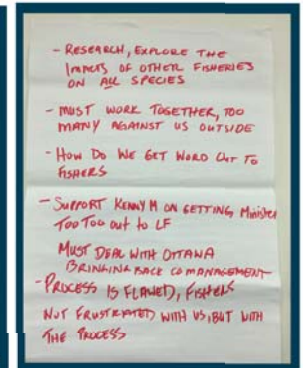 - RESEARCH, EXPLORE THE
IMPACTS OF OTHER FISHERIES
ON ALL SPECIES
- MUST WORK TOGETHER, TOO
MANY AGAINST US OUTSIDE
- HOW DO WE GET WORD OUT TO
FISHERS
- SUPPORT KENNY M ON GETTING Minister
TOO TOO out to LF
MUST DEAL WITH OTTAWA
BRINGING BACK CO MANAGEMENT
- PROCESS IS FLAWED, FISHERS
NOT FRUSTRATED WITH US, BUT WITH
THE PROCESS